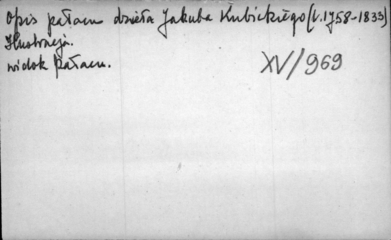 Opis pałacu dzieła Jakuba Kubickiego (r. 1758-1833)
Ilustracja.
widok pałacu.
XV/969